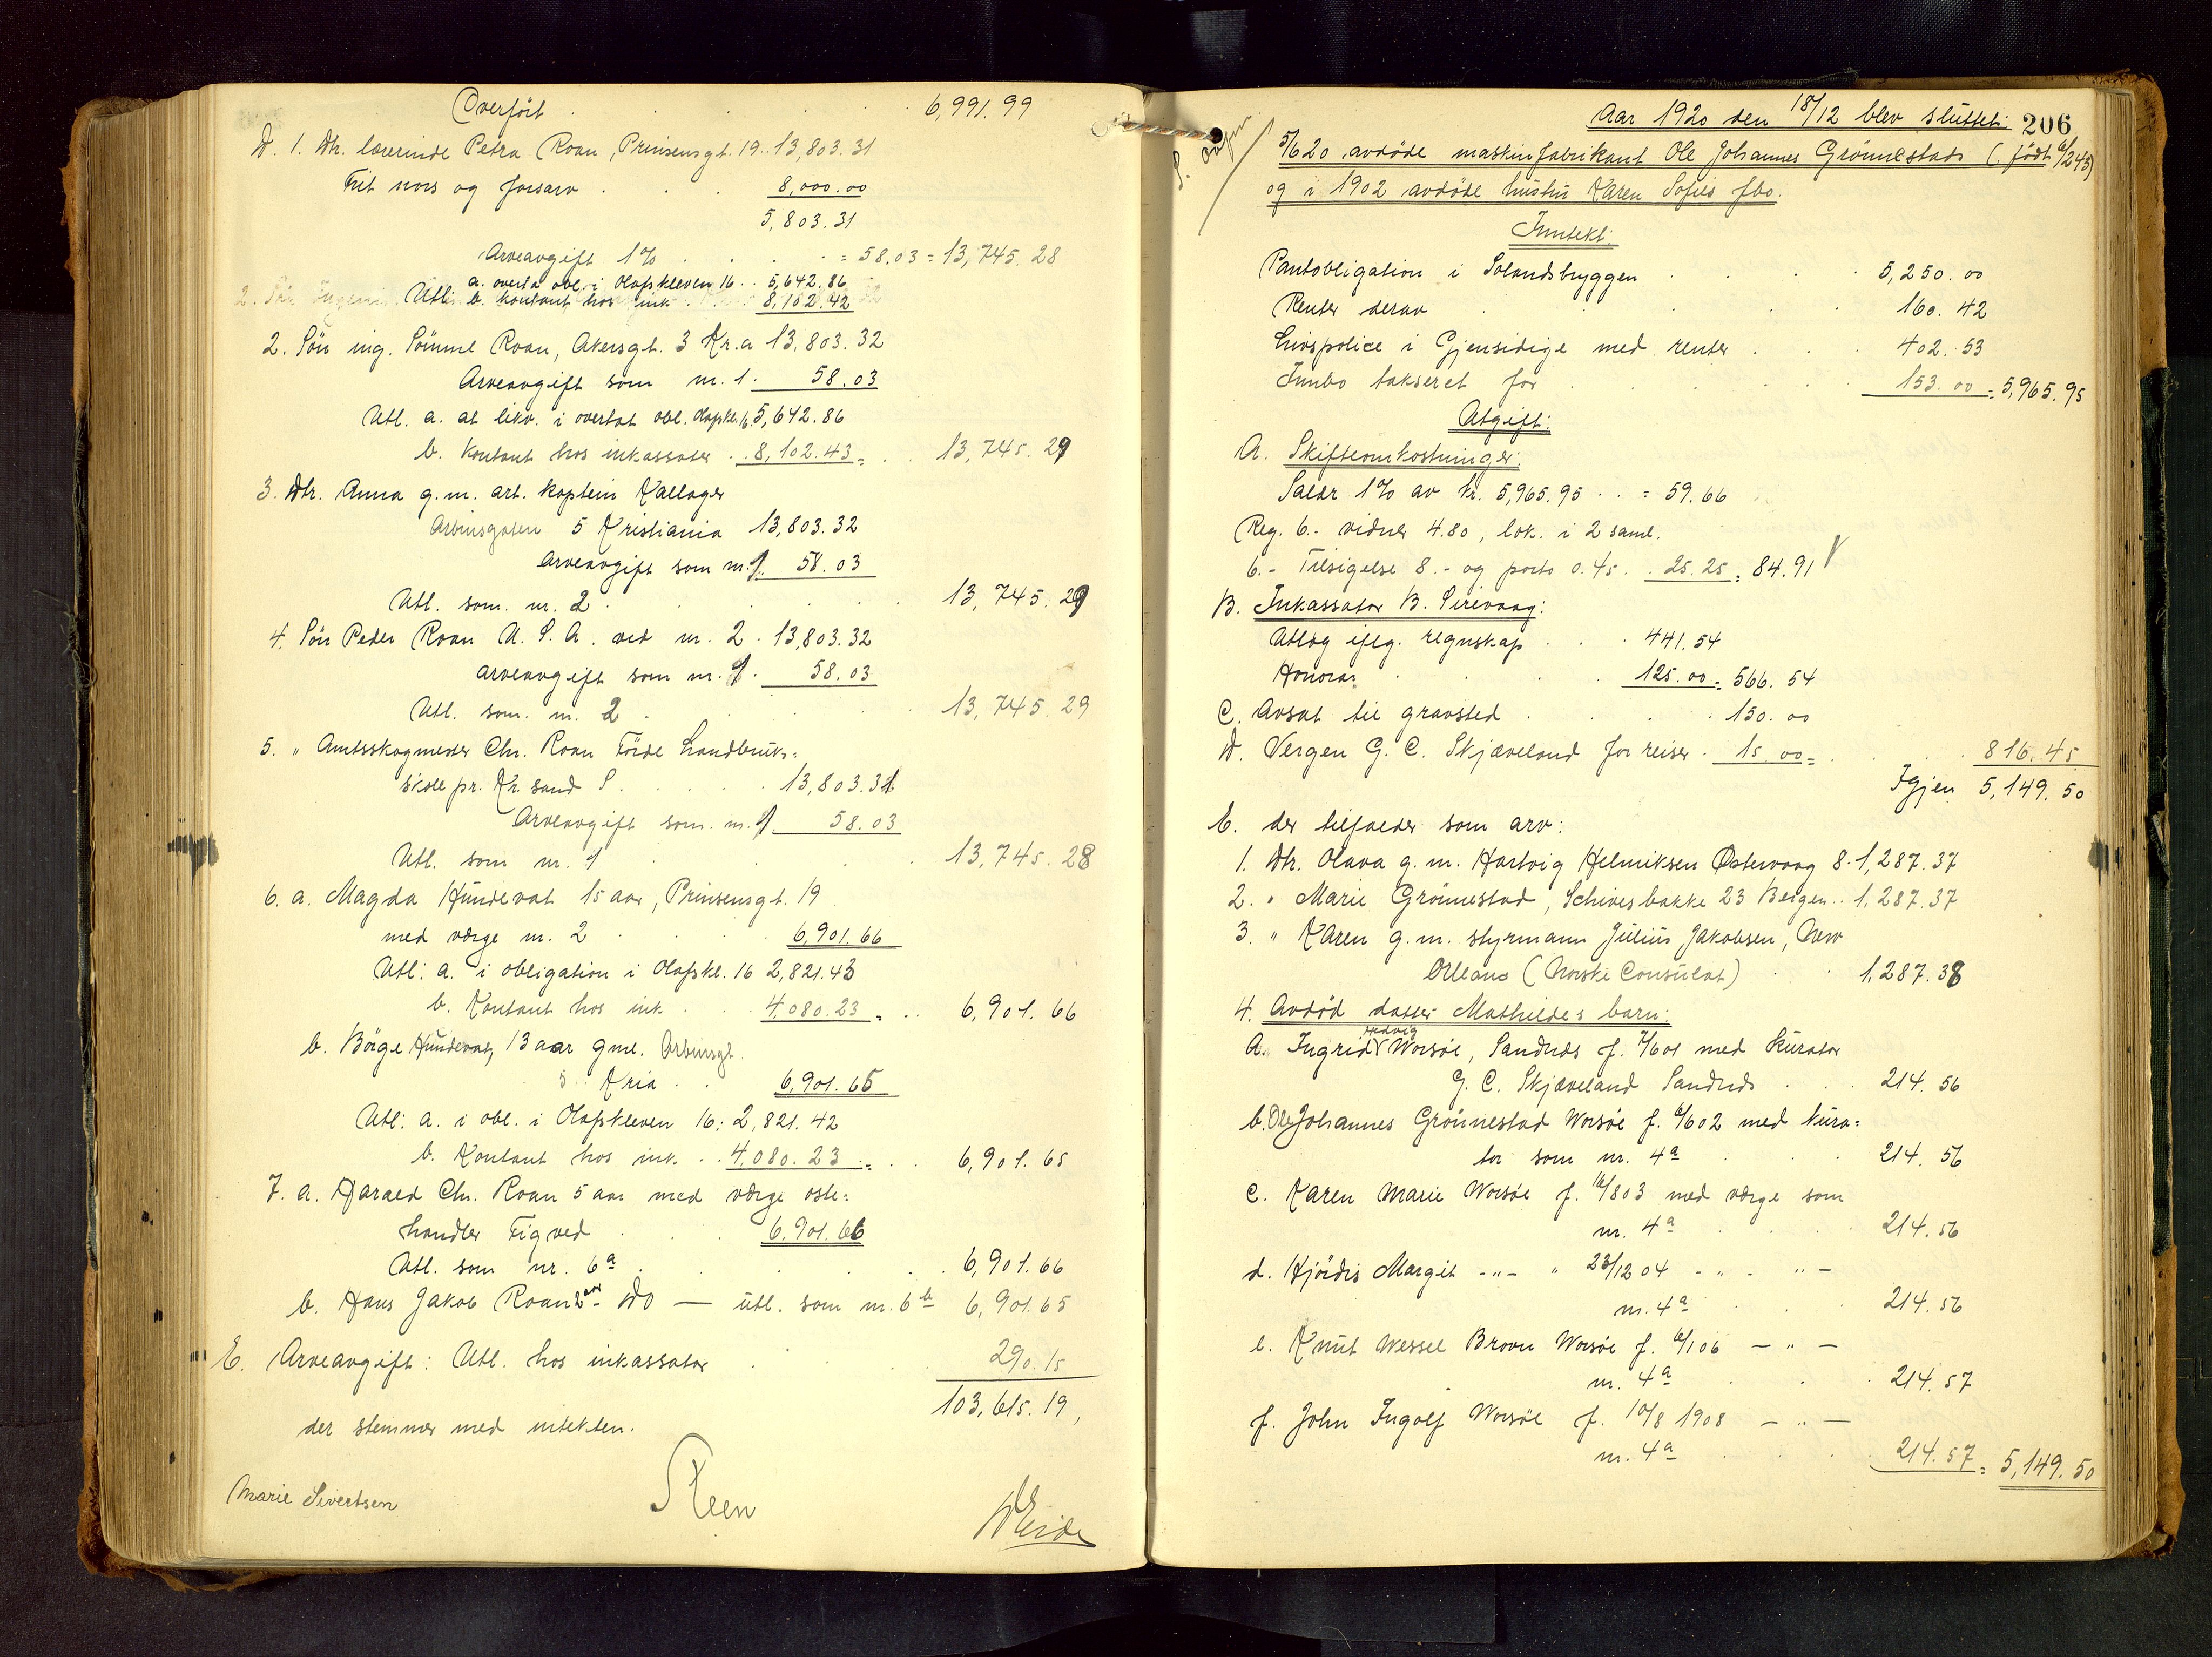 Overført . . . . . 6,991.99
D. 1. Dtr. lærerinde Petra Roan, Prinsensgt. 19.. 13,803.31
Frit vors og forsarv . . . 8,000.00
5,803.31
Arveavgift 1% . . . . = 58.03 = 13,745.28
a. overta obl. i Olafskleven 16 . . 5,642.86
Utl: b. kontant hos ink. . . 8,102.42
2. Søn ing. Sømme Roan, Akersgt. 3 Kr.a 13,803.32
Arveavgift som nr. 1. 58.03
Utl. a. at likv. i overtat obl. Olafskl. 16 5,642.86
b. Kontant hos inkassator . . 8,102.43 = . . 13,745.29
3. Dtr. Anna g.m. art. kaptein Kallager
Arbinsgaten 5 Kristiania 13,803.32
Arveavgift som nr. 1. 58.03
Utl. som. nr. 2 . . . . . 13,745.29
4. Søn Peder Roan U.S.A. ved nr. 2 . 13,803.32
arveavgift som nr. 1 . 58.03
Utl. som. nr. 2 . . . . 13,745.29
5. " Amtsskogmester Chr. Roan Førde Landbruks=
skole pr. Kr.sand S . . . . . 13,803.31
Arveavgift som. nr. 1. 58.03
Utl. som nr. 1 . . . . 13,745.28
6. a. Magda Hundevat 15 aar, Prinsensgt. 19
med værge nr. 2 . . . . 6,901.66
Utl: a. i obligation i Olafskl. 16 2,821.43
b. Kontant hos ink. . . 4,080.23 = . . 6,901.66
b. Börge Hundevat, 13 aar gml. Arbinsgt.
5 Kria . . 6,901.65
Utl: a. i obl. i Olafskleven 16: 2,821.42
b. Kontant hos ink. . . 4,080.23 = . . 6,901.65
7. a. Harald Chr. Roan 5 aar med værge oste=
handler Figved . . . 6,901.66
Utl. som nr. 6a . . . . . 6,901.66
b. Hans Jakob Roan 2 aar - do — utl. som nr. 6b 6,901.65
E. Arveavgift: Utl. hos inkassator . . . 290.15
103,615.19,
der stemmer med intekten.
Marie Sivertsen Steen
Aar 1920 den 18/12 blev sluttet: 206
5/6 20 avdöde maskinfabrikant Ole Johannes Grönnestads (født 6/2 43)
og i 1902 avdöde hustru Karen Sofies fbo.
Inntekt:
Pantobligation i Solandsbryggen . . . . 5,250.00
Renter derav . . . . 160.42
Livspolice i Gjensidige med renter . . . 402.53
Innbo takseret for . . . . . 153.00 = 5,965.95
Utgift:
A. Skifteomkostninger:
Salær 1% av kr. 5,965.95 . . = 59.66
Reg. 6.- vidner 4.80, lok. i 2 saml.
6.- Tilsigelse 8.- og porto 0.45 . . 25.25 = 84.91
B. Inkassator B. Sirevaag:
Utlæg iflg. regnskap . . . 441.54
Honorar . . . . 125.00 = 566.54
C. Avsat til gravsted . . . . 150.00
D. Vergen G. C. Skjæveland for reiser . 15.00 = . . 816.45
Igjen 5,149.50
E. der tilfalder som arv:
1. Dtr. Olava g.m. Hartvig Helmiksen Østervaag 8. 1,287.37
2. " Marie Grönnestad, Schives bakke 23 Bergen . . 1,287.37
3. " Karen g.m. styrmann Julius Jakobsen, New
Orleans (Norske Consulat) . . 1,287.38
4. Avdød datter Mathildes barn:
Hedvig
a. Ingrid Worsøe, Sandnes f. 7/6 01 med kurator
G. C. Skjæveland Sandnes . . . 214.56
b. Ole Johannes Grönnestad Worsøe f. 6/6 02 med kura=
tor som nr. 4a . . . 214.56
c. Karen Marie Worsøe f. 16/8 03 med værge som
nr. 4a . . . 214.56
d. Hjördis Margit -"- " 23/12 04 - " - " -
nr. 4a . . . 214.56
e. Knut Wessel Brown Worsøe f. 6/1 06 — " —
nr. 4a . . . 214.57
f. John Ingolf Worsøe f. 10/8 1908 — " —
nr. 4a . . . 214.57 = 5,149.50